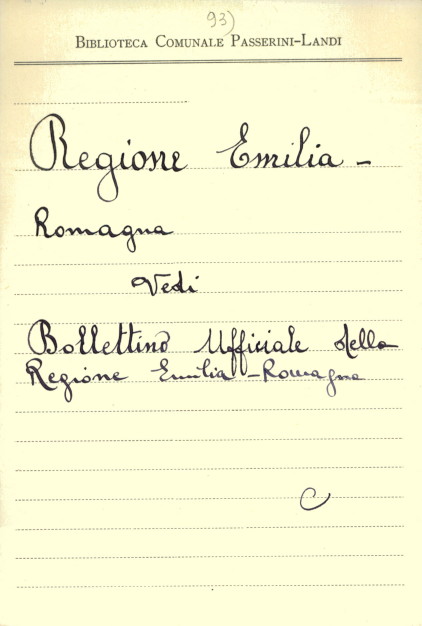 93)
Biblioteca Comunale Passerini-Landi
Regione Emilia-
Romagna
Vedi
Bollettino Ufficiale della
Regione Emilia-Romagna
C